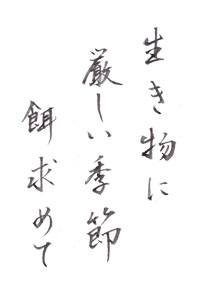 生き物に
厳しい季節
餌求めて